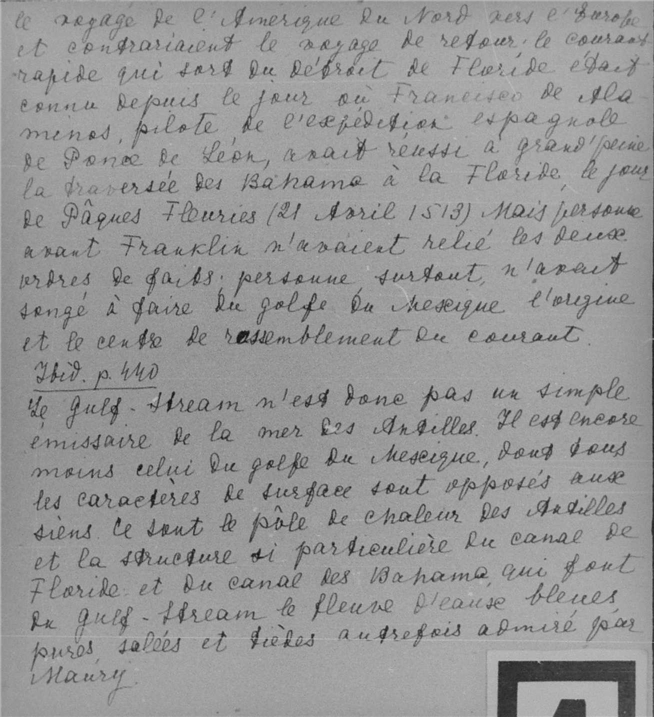 le voyage de l'Amérique du Nord vers l'Europe
et contrariaient le voyage de retour. le courant
rapide qui sort du détroit de Floride était
connu depuis le jour où Francisco de Ala-
minos, pilote de l'expédition espagnole
de Ponce de Léon, avait réussi à grand'peine
la traversée des Bahama à la Floride, le jour
de Pâques Fleuries (21 Avril 1513) Mais personne
avant Franklin n'avaient relié les deux
ordres de faits; personne, surtout, n'avait
songé à faire du golfe du Mexique l'origine
et le centre de rassemblement du courant.
Ibid. p. 440
Le Gulf-Stream n'est donc pas un simple
émissaire de la mer des Antilles. Il est encore
moins celui du golfe du Mexique, dont tous
les caractères de surface sont opposés aux
siens. Ce sont le pôle de chaleur des Antilles
et la structure si particulière du canal de
Floride et du canal des Bahama, qui font
du Gulf-Stream le fleuve d'eaux bleues,
pures salées et tièdes autrefois admiré par
Maury.